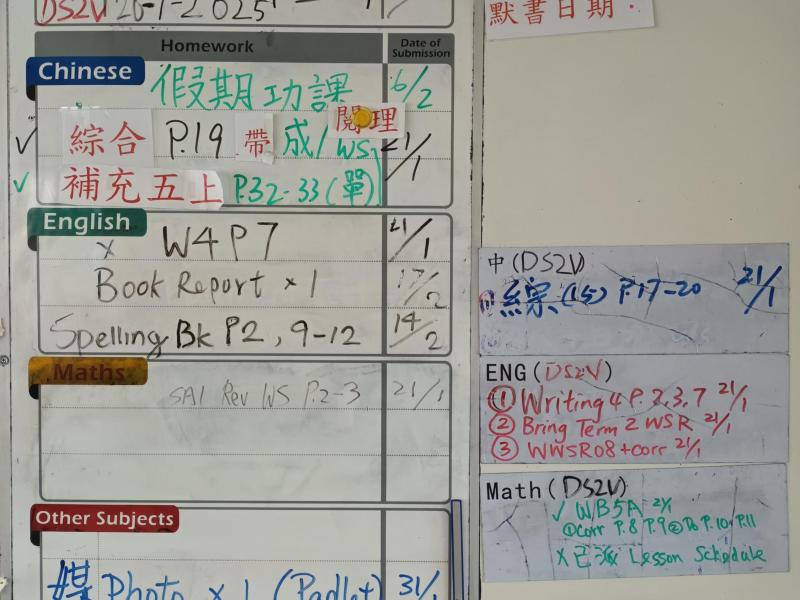 DS2V 20-1-2025
默書日期：
Homework Date of Submission
Chinese 假期功課 6/2
✓ 綜合 P.19 帶 成/WS 閱理 21/1
✓ 補充五上 P.32-33 (單)
English
x W4 P7 21/1
Book Report x 1 17/2
Spelling Bk P2, 9-12 14/2
Maths
SA1 Rev WS P.2-3 21/1
Other Subjects
媒 Photo x 1 (Padlet) 31/1
中(DS2V)
綜(15) P.17-20 21/1
ENG(DS2V)
① Writing 4 P.2,3,7 21/1
② Bring Term 2 WSR 21/1
③ WWSR08+corr 21/1
Math(DS2V)
✓ WB5A 21/1
①Corr P.8 P.9 ②Do P.10, P.11
x 已派 Lesson Schedule